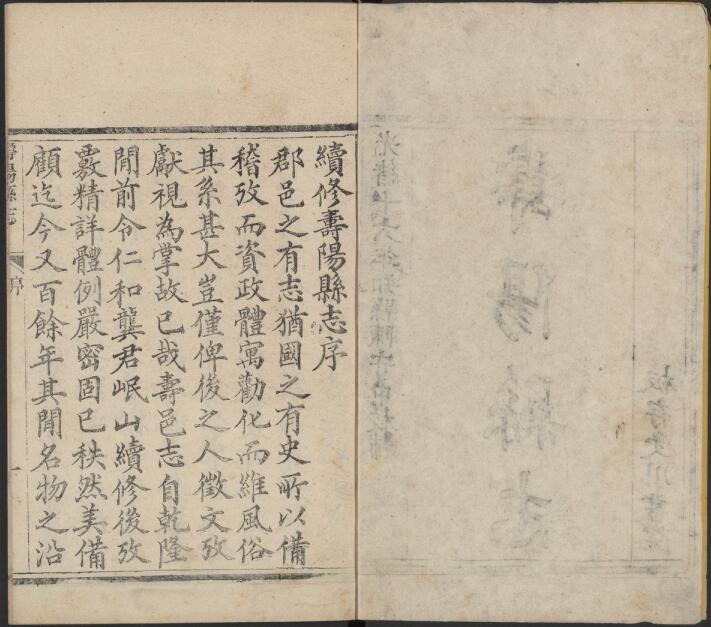 壽陽縣志
續修壽陽縣志序
郡邑之有志猶國之有史所以備
稽攷而資政體寓勸化而維風俗
其系甚大豈僅俾後之人徵文攷
獻視為掌故已哉壽邑志自乾隆
閒前令仁和龔君岷山續修後攷
覈精詳體例嚴密固已秩然美備
顧迄今又百餘年其閒名物之沿
壽陽縣志 序 一